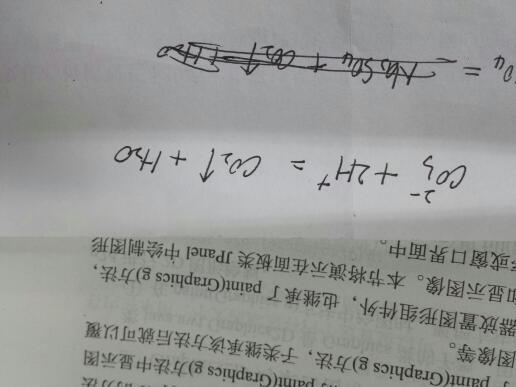 paint(Graphics g)方法中显示图
了 paint(Graphics g)方法，子类继承该方法后就可以覆
图像等。
器放置图形组件外，也继承了 paint(Graphics g)方法，
如显示图像。本节将演示在面板类 JPanel 中绘制图形
或窗口界面中。
CO₃²⁻ + 2H⁺ = CO₂↑ + H₂O
O₄ = Na₂SO₄ + CO₂↑ + H₂O